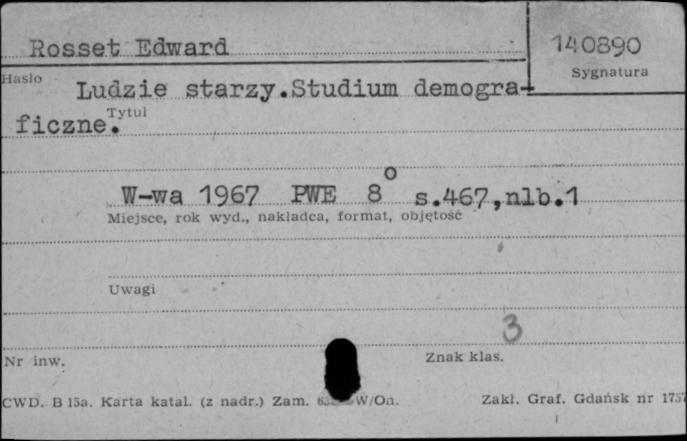 Rosset Edward 140890
Hasło Sygnatura
Ludzie starzy.Studium demogra-
Tytuł
ficzne.
W-wa 1967 PWE 8° s.467,nlb.1
Miejsce, rok wyd., nakładca, format, objętość
Uwagi
3
Nr inw. Znak klas.
CWD. B 15a. Karta katal. (z nadr.) Zam. W/On. Zakł. Graf. Gdańsk nr